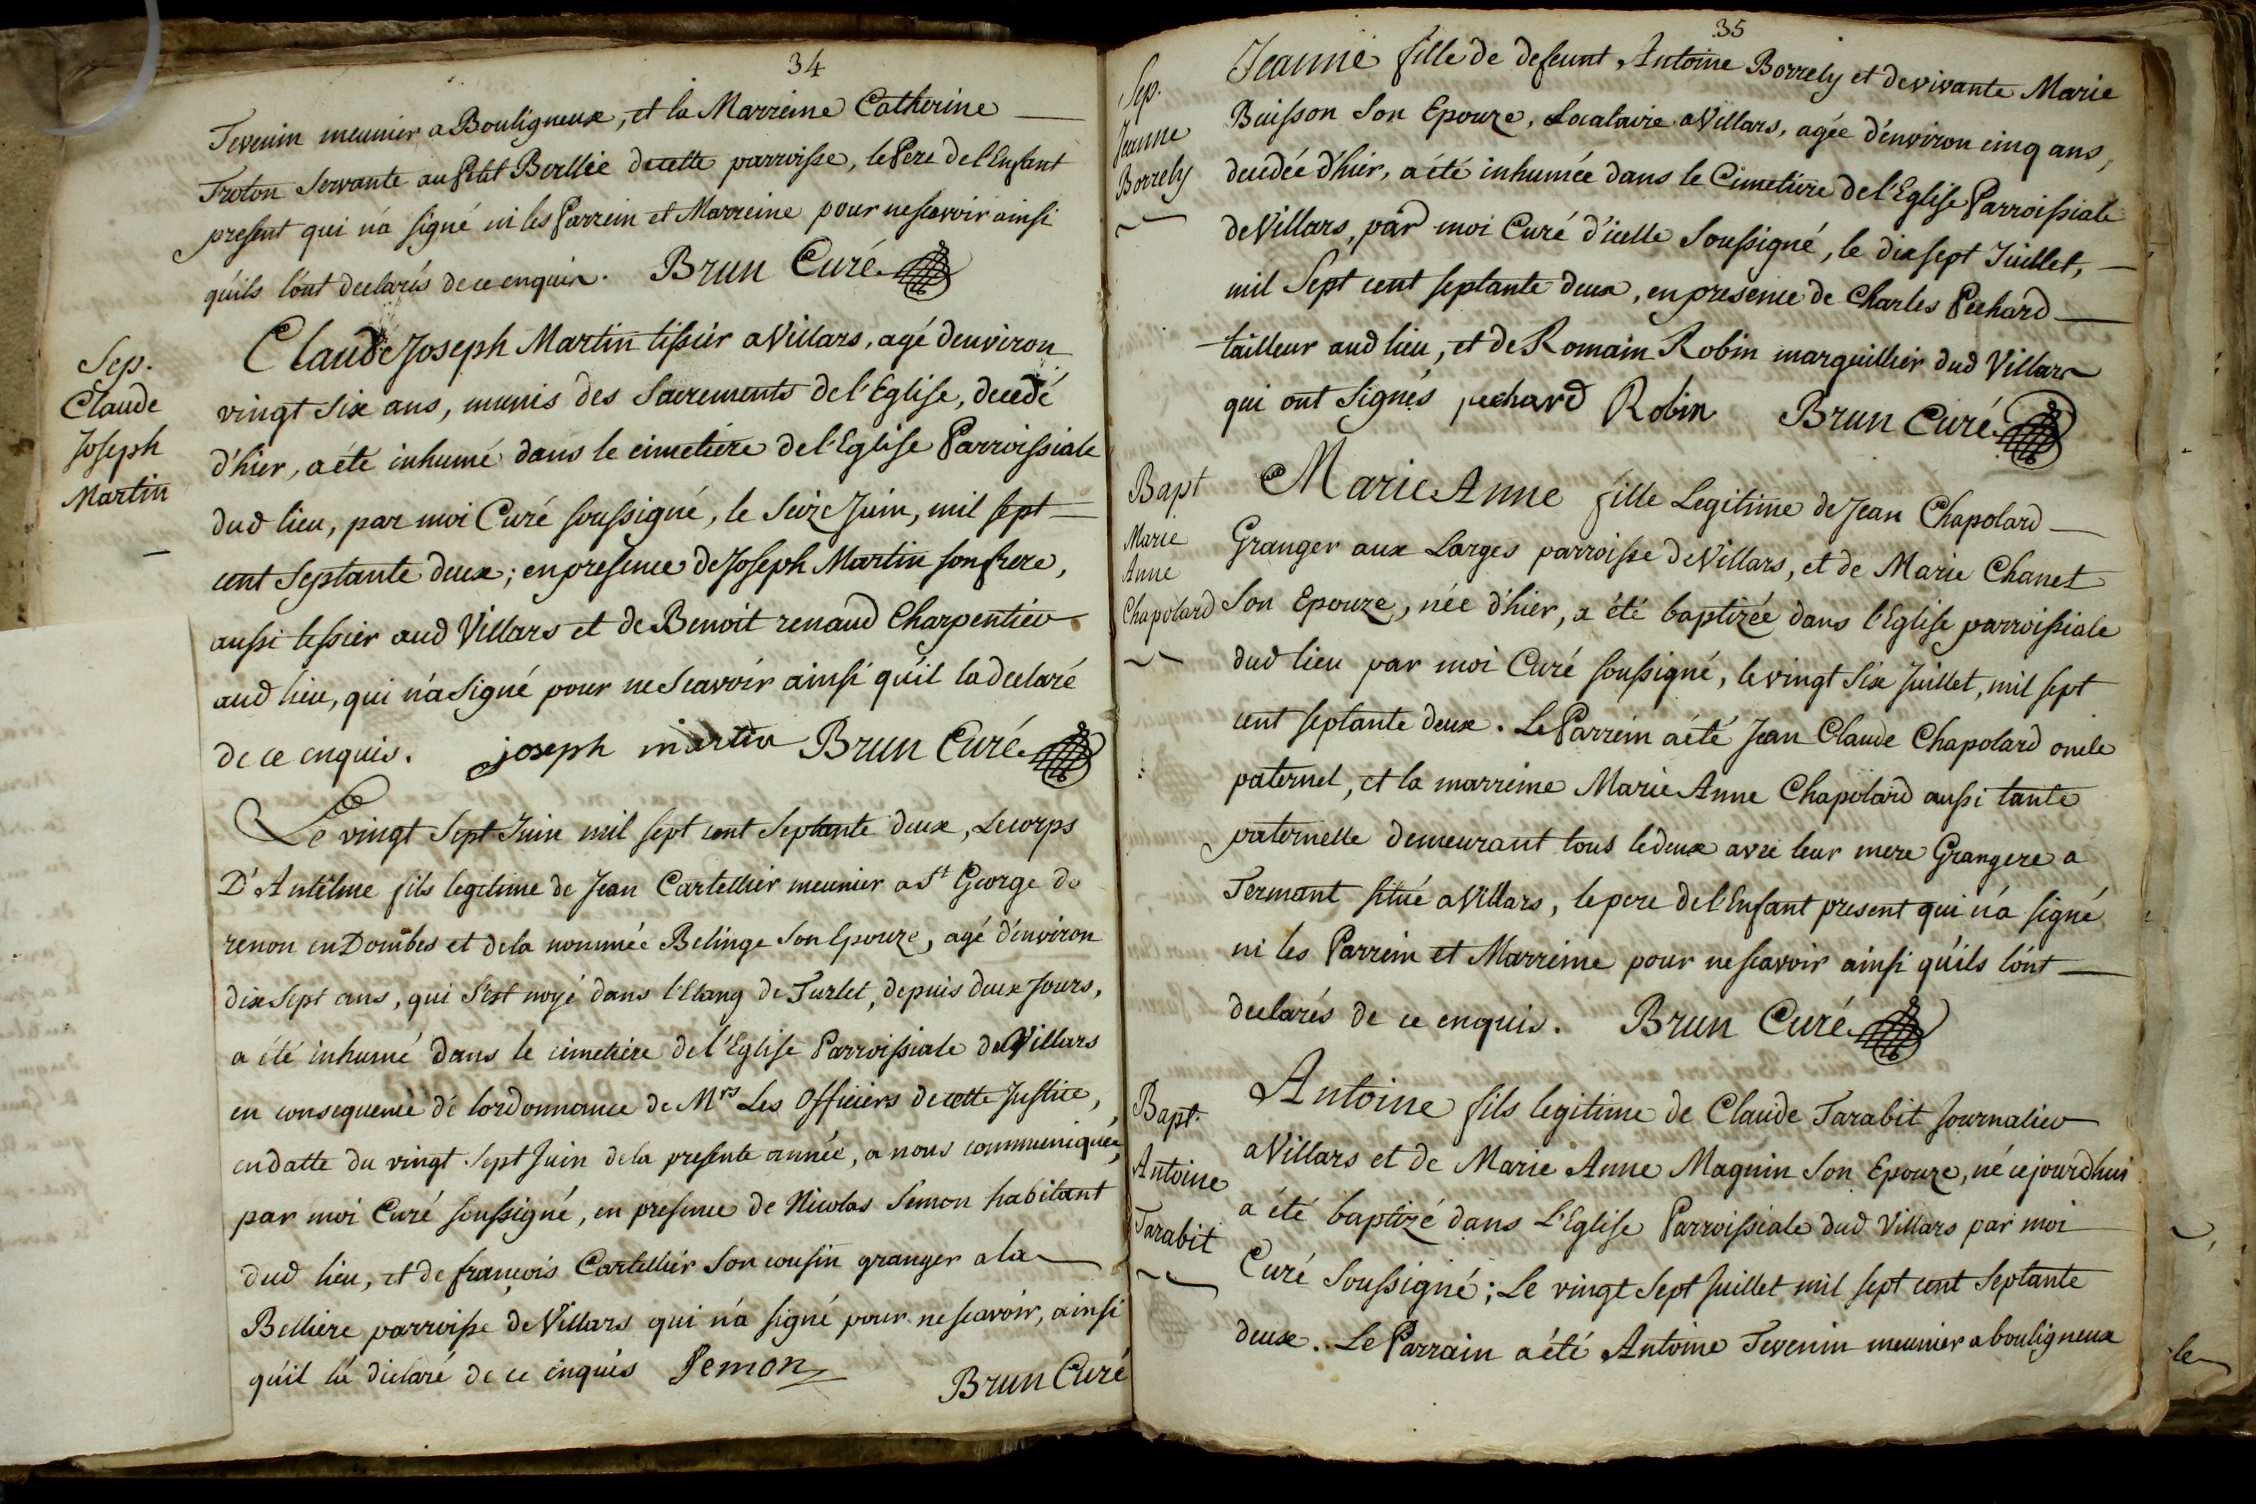 34
Tevenin meunier a Bouligneux, et la Marreine Catherine
Troton Servante au Petit Berlie decette parroisse, le Pere de l'Enfant
present qui n'a signé ni les Parrein et Marreine pour nescavoir ainsi
qu'ils l'ont declarés de ce enquis. Brun Curé
Sep.
Claude
Joseph
Martin
Claude Joseph Martin tissier a Villars, agé d'environ
vingt six ans, munis des Sacrements de l'Eglise, decedé
d'hier, a été inhumé dans le cimetiere de l'Eglise Parroissiale
dud lieu, par moi Curé soussigné, le Seize Juin, mil sept
cent Septante deux; en presence de Joseph Martin son frere,
aussi tessier aud Villars et de Benoit renaud Charpentier
aud lieu, qui n'a Signé pour ne Scavoir ainsi qu'il la declaré
de ce enquis. joseph martin Brun Curé
Le vingt Sept Juin mil sept cent Septante deux, Le corps
D'Antelme fils legitime de Jean Cartellier meunier a St George de
renon en Dombes et de la nommée Belinge Son Epouze, agé d'environ
dix sept ans, qui s'est noyé dans l'Etang de Turlet, depuis deux Jours,
a été inhumé dans le cimetiere de l'Eglise Parroissiale de Villars
en consequence de lordonnance de Mrs Les Officiers de cette Justice,
en datte du vingt Sept Juin de la presente année, a nous communiquée,
par moi Curé soussigné, en presence de Nicolas Semon habitant
dud lieu, et de françois Cartellier Son cousin granger a la
Belliere parroisse de Villars qui n'a signé pour ne scavoir, ainsi
qu'il la declaré de ce enquis Semon
Brun Curé
35
Sep.
Jeanne
Borrely
Jeanne fille de defeunt Antoine Borrely et de vivante Marie
Buisson Son Epouze, Localaire a Villars, agée d'environ cinq ans,
decedée d'hier, a été inhumée dans le Cimetiere de l'Eglise Parroissiale
de Villars, par moi Curé d'icelle Soussigné, le dix sept Juillet,
mil Sept cent septante deux, en presence de Charles Pechard
tailleur aud lieu, et de Romain Robin marguillier dud Villars
qui ont Signés pechard Robin Brun Curé
Bapt
Marie
Anne
Chapolard
Marie Anne fille Legitime de Jean Chapolard
Granger aux Larges parroisse de Villars, et de Marie Chanet
Son Epouze, née d'hier, a été baptizée dans l'Eglise parroissiale
dud lieu par moi Curé soussigné, le vingt Six Juillet, mil sept
cent septante deux. Le Parrein a été Jean Claude Chapolard oncle
paternel, et la marreine Marie Anne Chapolard aussi tante
paternelle demeurant tous le deux avec leur mere Grangere a
Termant situé a Villars, le pere de l'Enfant present qui n'a signé
ni les Parrein et Marreine pour ne scavoir ainsi qu'ils l'ont
declarés de ce enquis. Brun Curé
Bapt.
Antoine
Tarabit
Antoine fils legitime de Claude Tarabit Journalier
a Villars et de Marie Anne Magnin Son Epouze, né ce jourdhui
a été baptizé dans L'Eglise Parroissiale dud Villars par moi
Curé Soussigné; Le vingt Sept Juillet mil sept cent Septante
deux. Le Parrain a été Antoine Tevenin meunier a bouligneux